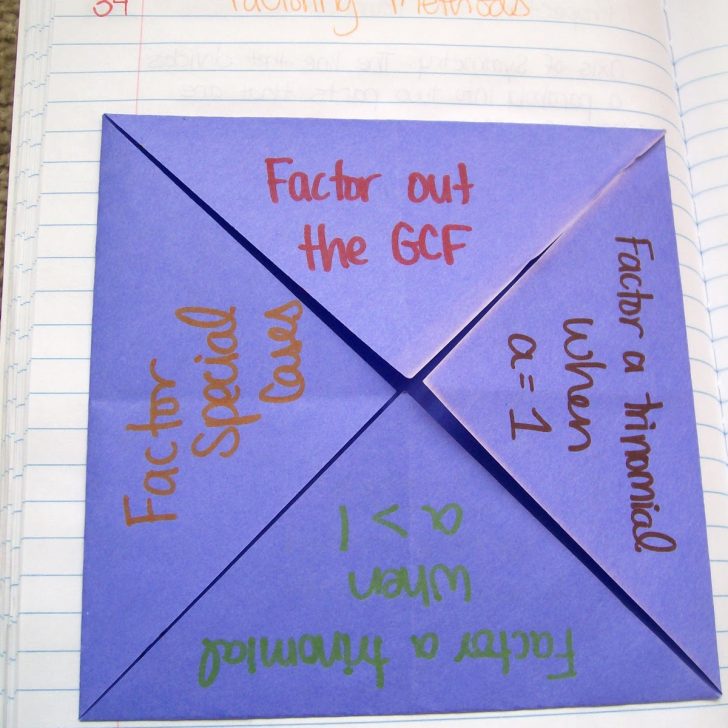 Factoring Methods
Factor out
the GCF
Factor a trinomial
when
a = 1
Factor a trinomial
when
a > 1
Factor
Special
Cases